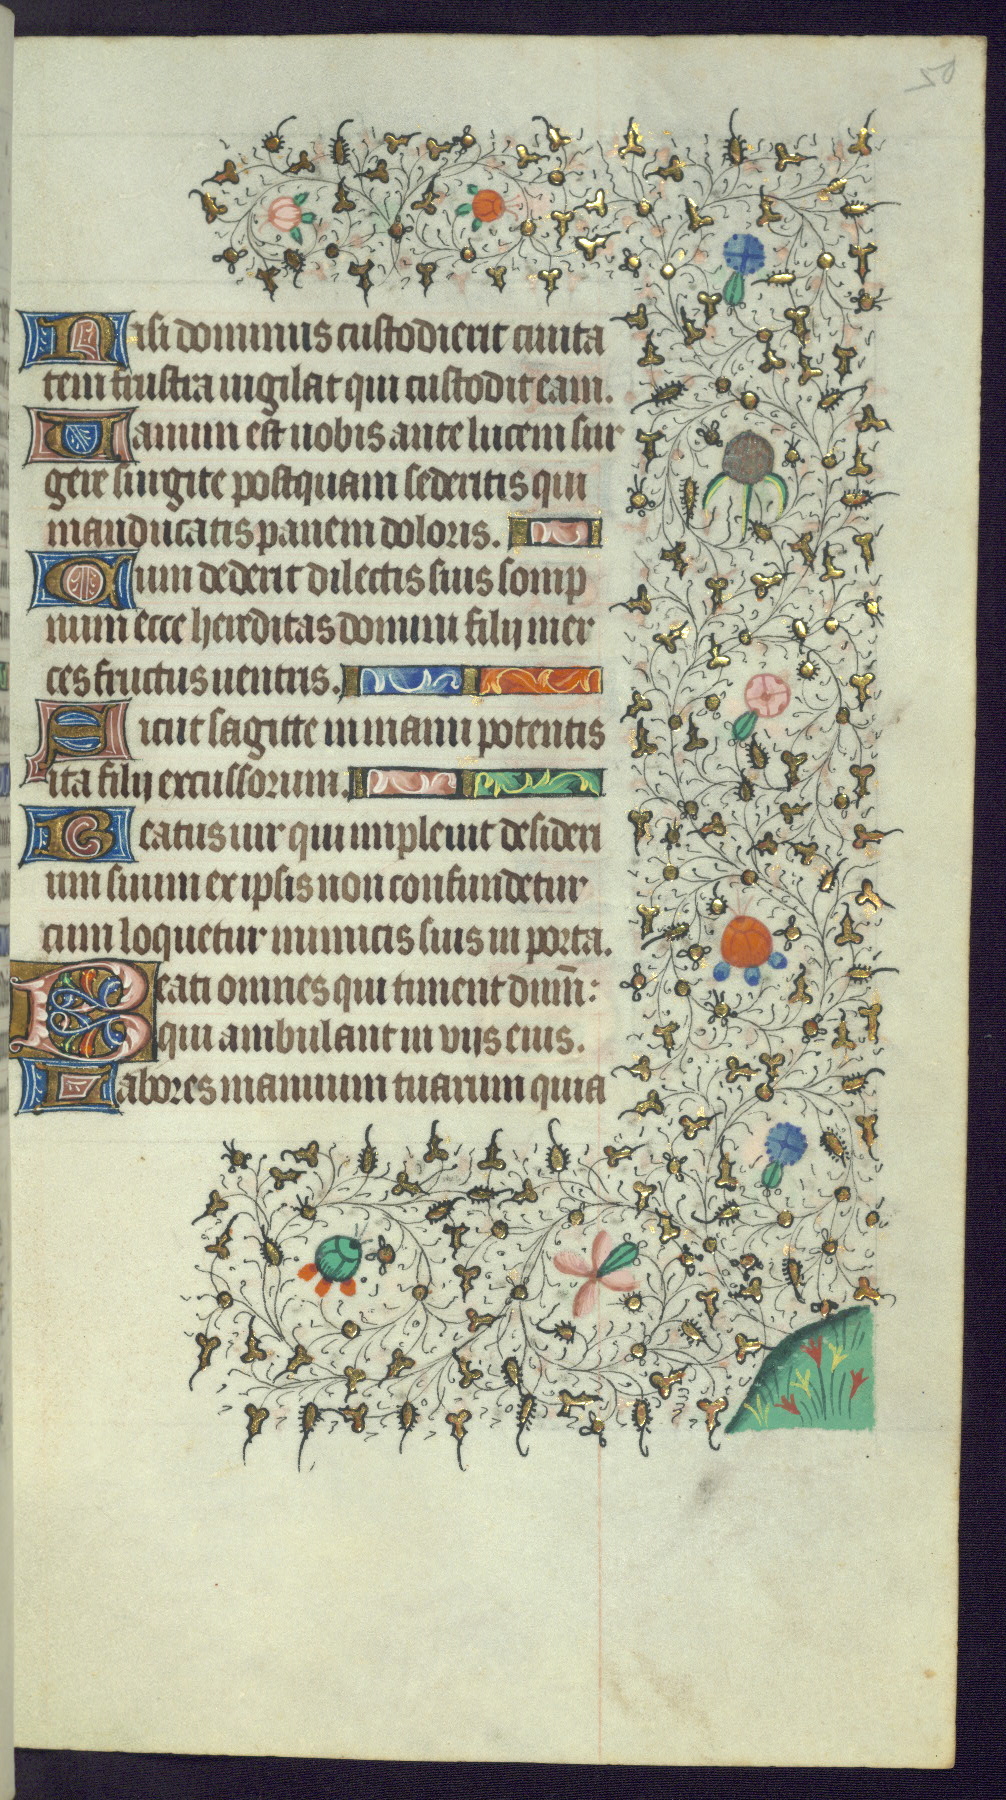 50
Nisi dominus custodierit ciuita
tem frustra uigilat qui custodit eam.
Uanum est uobis ante lucem sur
gere surgite postquam sederitis qui
manducatis panem doloris.
Cum dederit dilectis suis somp
num ecce hereditas domini filij mer
ces fructus uentris.
Sicut sagitte in manu potentis
ita filij excussorum.
Beatus uir qui impleuit desideri
um suum ex ipsis non confundetur
cum loquetur inimicis suis in porta.
Beati omnes qui timent dnm̄:
qui ambulant in vijs eius.
Labores manuum tuarum quia